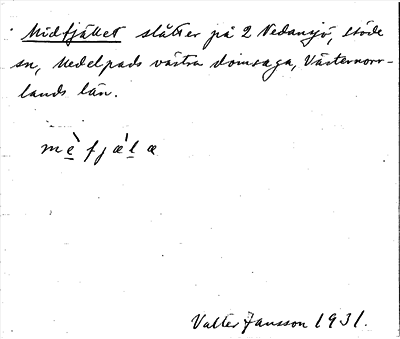 Midfjället slåtter på 2 Nedansjö, Stöde
sn, Medelpads västra domsaga, Västernorr-
lands län.
mè̱fjæ̀ḻæ
Valter Jansson 1931.